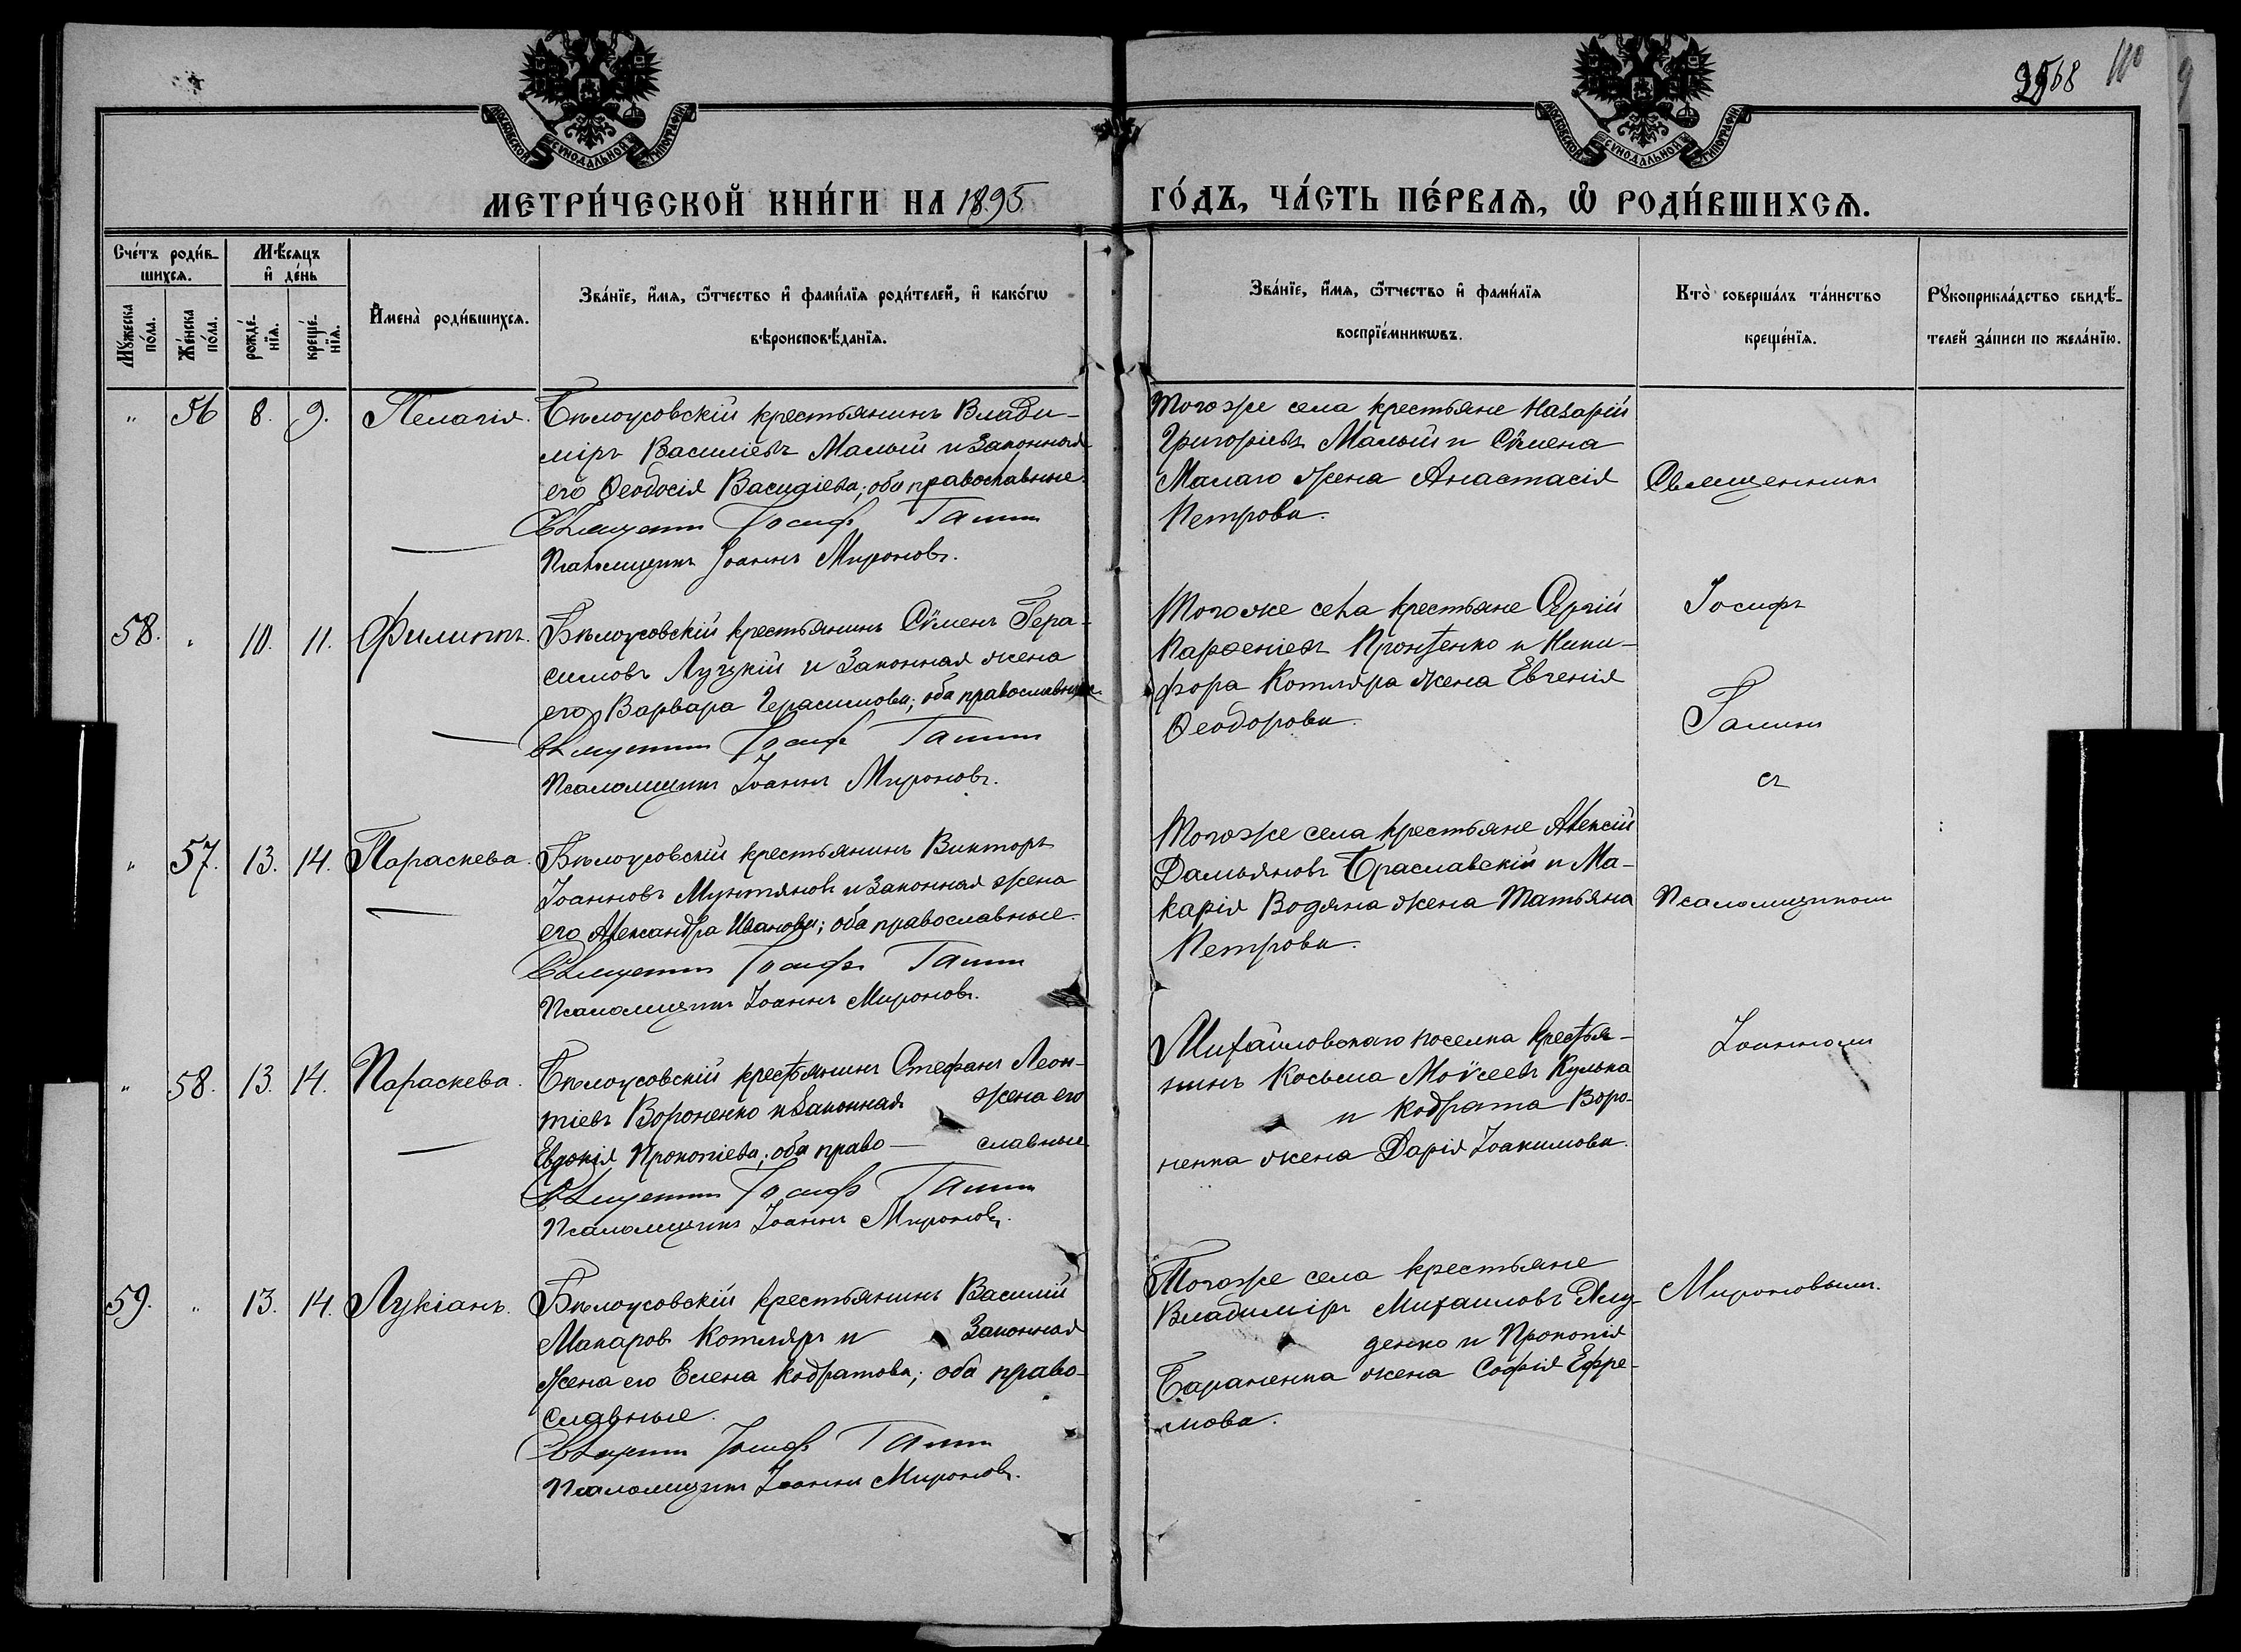 2568 110
МОСКОВСКОЙ СѴНОДАЛЬНОЙ ТИПОГРАФІИ
МОСКОВСКОЙ СѴНОДАЛЬНОЙ ТИПОГРАФІИ
МЕТРИ́ЧЕСКОЙ КНИ́ГИ НА 1895
ГО́ДЪ, ЧА́СТЬ ПЕ́РВАѦ, Ѡ҆ РОДИ́ВШИХСѦ.
Сче́тъ роди́в-
шихсѧ.
Мѣ́сѧцъ
и҆ де́нь
Мꙋ́жеска
по́ла.
Же́нска
по́ла.
рожде́-
нїѧ.
креще́-
нїѧ.
И҆мена̀ роди́вшихсѧ.
Зва́нїе, и҆́мѧ, ѻ҆́тчество и҆ фами́лїѧ роди́телей, и҆ како́гѡ
вѣроисповѣ́данїѧ.
Зва́нїе, и҆́мѧ, ѻ҆́тчество и҆ фами́лїѧ
воспрїе́мникѡвъ.
Кто̀ соверша́лъ та́инство
креще́нїѧ.
Рꙋкоприкла́дство свидѣ́-
телей за́писи по жела́нїю.
" 56 8. 9. Пелагія.
Бѣлоусовскій крестьянинъ Влади-
міръ Василіевъ Малый и законная
его Ѳеодосія Василіева; оба православные.
Священникъ Іосифъ Ганин
Псаломщикъ Іоаннъ Мироновъ.
Тогоже села крестьяне Назарій
Григоріевъ Малый и Сѵмена
Малаго жена Анастасія
Петрова.
Священникъ
58. " 10. 11. Филиппъ.
Бѣлоусовскій крестьянинъ Сѵменъ Гера-
симовъ Луцкій и законная жена
его Варвара Герасимова; оба православные.
Священникъ Іосифъ Ганин
Псаломщикъ Іоаннъ Мироновъ.
Тогоже села крестьяне Сергій
Парѳеніевъ и Ники-
фора Котляра жена Евгенія
Ѳеодорова.
Іосифъ
Ганинъ
съ
" 57. 13. 14. Параскева.
Бѣлоусовскій крестьянинъ Викторъ
Іоанновъ Мунтяновъ и законная жена
его Александра Иванова; оба православные.
Священникъ Іосифъ Ганин
Псаломщикъ Іоаннъ Мироновъ.
Тогоже села крестьяне Алексій
Дамьяновъ Браславскій и Ма-
карія Водяна жена Татьяна
Петрова.
Псаломщикомъ
" 58. 13. 14. Параскева.
Бѣлоусовскій крестьянинъ Стефанъ Леон-
тіевъ Вороненко и законная жена его
Евдокія Прокопіева; оба право- славные.
Священникъ Іосифъ Ганин
Псаломщикъ Іоаннъ Мироновъ.
Михаиловскаго поселка крестья-
нинъ Косьма Моѵсеевъ Кулька
и Кодрата Воро-
ненка жена Дарія Іоакимова.
Іоанномъ
59. " 13. 14. Лукіанъ.
Бѣлоусовскій крестьянинъ Василій
Макаровъ Котляръ и законная
жена его Елена Кодратова; оба право-
славные.
Священникъ Іосифъ Ганин
Псаломщикъ Іоаннъ Мироновъ.
Тогоже села крестьяне
Владиміръ Михаиловъ
и Прокопія
Бараненка жена Софія Ефре-
мова.
Мироновымъ.